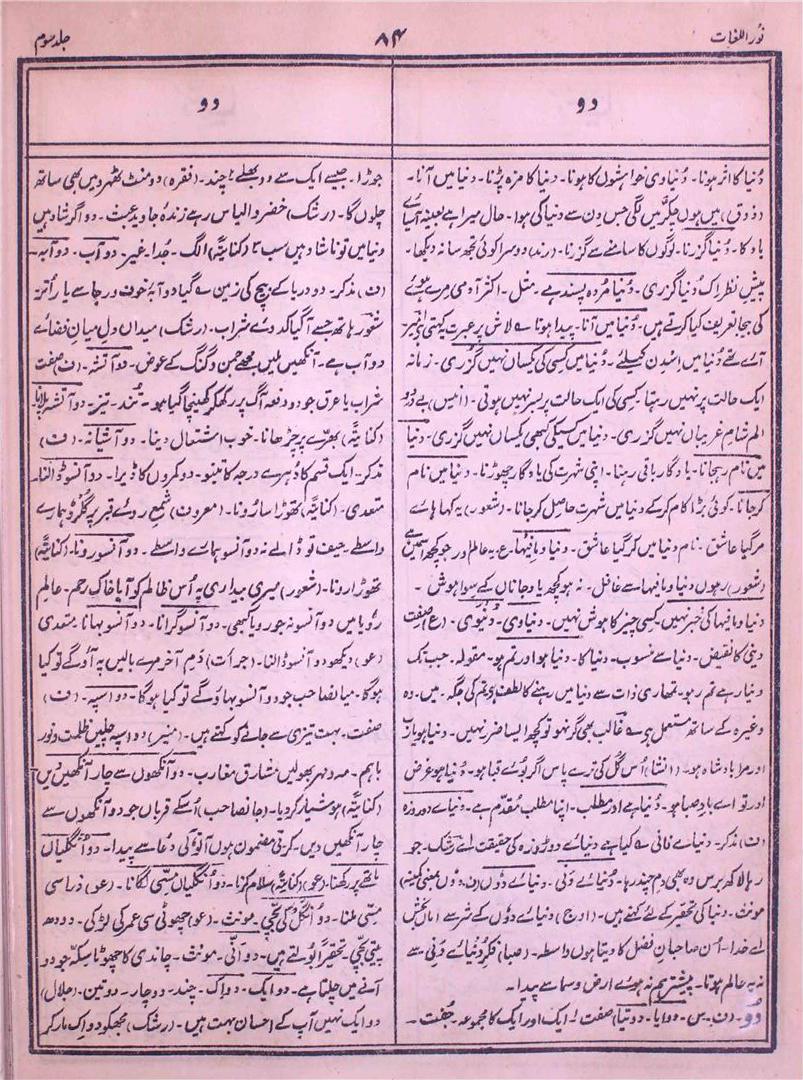 نور اللغات
۸۴
جلد سوم
دو
دو
دُنیا کا اثر ہونا۔ دُنیاوی خواہشوں کا ہونا۔ دنیا کا مزہ پڑنا۔ دنیا میں آنا۔
(ذوق) میں ہوں چکّر میں لگی جس دن سے دنیا کی ہوا۔ حال میرا ہے بعینہ آسیائے
باد کا۔ دُنیا گزرنا۔ لوگوں کا سامنے سے گزرنا۔ (رند) دوسرا کوئی تجھ سا نہ دیکھا۔
پیش نظر اک دُنیا گزری۔ دُنیا مُردہ پسند ہے۔ مثل۔ اکثر آدمی مرے ہوئے
کی بیجا تعریف کیا کرتے ہیں۔ دُنیا میں آنا۔ پیدا ہونا ے لاش پر عبرت کہتی ہے امیرؔ
آئے تھے دُنیا میں اِسدن کیلئے۔ دُنیا میں کسی کی یکساں نہیں گُزری۔ زمانہ
ایک حالت پر نہیں رہتا۔ کسی کی ایک حالت پر بسر نہیں ہوتی۔ (انیس) بے درد و
الم شامِ غریباں نہیں گزری۔ دنیا میں کسیکی کبھی یکساں نہیں گزری۔ دُنیا
میں نام رہجانا۔ یادگار باقی رہنا۔ اپنی شہرت کی یادگار چھوڑنا۔ دنیا میں نام
کر جانا۔ کوئی بڑا کام کرکے دنیا میں شہرت حاصل کر جانا۔ (شعور) یہ کہا ہائے
مر گیا عاشق۔ نام دنیا میں کر گیا عاشق۔ دنیا و مافیہا۔ ع۔ یہ عالم اور جو کچھ اسمیں ہے
(شعور) رہوں دنیا و مافیہا سے غافل۔ نہ ہو کچھ یادِ جاناں کے سوا ہوش۔
دنیا و مافیہا کی خبر نہیں۔ کسی چیز کا ہوش نہیں۔ دنیاوی۔ دُنیوی۔ (ع) صفت
دینی کا نقیض۔ دنیا سے منسوب۔ دنیا کا۔ دنیا ہو اور تم ہو۔ مقولہ۔ جب تک
دنیا رہے تم رہو۔ تمھاری ذات سے دنیا میں رہنے کا لطف ہو تم کی جگہ۔ میں۔ وہ
وغیرہ کے ساتھ مستعمل ہے ے غالب بھی گر نہو تو کچھ ایسا ضرر نہیں۔ دنیا ہو یا رب
اور مرا بادشاہ ہو۔ (انشا) اُس گُل کی ترے پاس اگر بُوئے قبا ہو۔ دُنیا ہو غرض
اور تو اے بادِ صبا ہو۔ دُنیا ہے اور مطلب۔ اپنا مطلب مُقدّم ہے۔ دنیائے دو روزہ
(ف) مذکر۔ دنیائے فانی ے کیا ہے دنیائے دو روزہ کی حقیقت اے رشک۔ جو
رہا لاکھ برس وہ بھی دم چند رہا۔ دُنیائے دَنی۔ دنیائے دُوں (ف۔ دُوں بمعنی کمینہ)
مونث۔ دنیا کی تحقیر کے لئے کہتے ہیں۔ (اوج) دنیائے دُوں کے شر سے اماں بخش
اے خدا۔ اُن صاحبانِ فضل کا دیتا ہوں واسطہ۔ (صبا) فکرِ دُنیائے دَنی سے
نہ یہ عالم ہوتا۔ پیشتر ہم نہ ہوئے ارض و سما سے پیدا۔
دُو۔ (ف۔ س۔ دوایا۔ دوتیا) صفت ۱ ایک اور ایک کا مجموعہ۔ جُفت۔
جوڑا۔ جیسے ایک سے دو بھلے ۲ چند۔ (فقرہ) دو منٹ ٹھہرو میں بھی ساتھ
چلوں گا۔ (رشک) خضر و الیاس رہے زندۂ جاوید عبث۔ دو اگر شاد ہیں
دنیا میں تو ناشاد ہیں سب ۳ (کنایۃً) الگ۔ جُدا۔ غیر۔ دو آب۔ دو آبہ۔
(ف) مذکر۔ دو دریا کے بیچ کی زمین ے گیا دو آبۂ خوف و رجا سے پار اُتر۔
شعور ہاتھ جسے آ گیا کدوئے شراب۔ (رشک) میداں دل میانِ فضائے
دو آب ہے۔ آنکھیں ملیں مجھے جمن و گنگ کے عوض۔ دو آتشہ۔ (ف) صفت
شراب یا عرق جو دو دفعہ آگ پر رکھکر کھینچا گیا ہو۔ تُند۔ تیز۔ دو آتشہ پلانا
(کنایۃً) بھرّے پر چڑھانا۔ خوب اشتعال دینا۔ دو آشیانہ۔ (ف)
مذکر۔ ایک قسم کا دُہرے درجہ کا تنبو۔ دو کمروں کا ڈیرا۔ دو آنسو ڈالنا۔
متعدی۔ (کنایۃً) تھوڑا سا رونا۔ (معروف) شمع رو ئے قبر پر گُلرو ہمارے
واسطے۔ حیف تو ڈالے نہ دو آنسو ہمارے واسطے۔ دو آنسو رونا۔ (کنایۃً)
تھوڑا رونا۔ (شعور) میری بیداری پہ اُس ظالم کو آیا خاک رحم۔ عالمِ
رؤیا میں دو آنسو نہ جو رویا کبھی۔ دو آنسو گرانا۔ دو آنسو بہانا۔ متعدی
(عو) دیکھو دو آنسو ڈالنا۔ (جرات) دَمِ آخر مرے بالیں پہ آؤ گے تو کیا
ہوگا۔ میاں صاحب جو دو آنسو بہاؤگے تو کیا ہوگا۔ دو اسپہ۔ (ف)
صفت۔ بہت تیزی سے جانے کو کہتے ہیں۔ (منیر) دو اسپہ چلیں ظلمت و نور
باہم۔ مہ و مہر بھولیں مشارق مغارب۔ دو آنکھوں سے چار آنکھیں دیں
(کنایۃً) ہوشیار کردیا۔ (جانصاحب) اُسکے قرباں جو دو آنکھوں سے
چار آنکھیں دیں۔ کرتی مضمون ہوں آتو کی دُعا سے پیدا۔ دو اُنگلیاں
ماتھے پر رکھنا۔ (عو) (کنایۃً) سلام کرنا۔ دو اُنگلیاں مسّی لگانا۔ (عو) ذرا سی
مسّی ملنا۔ دو اُنگل کی بچّی۔ مونث۔ (عو) چھوٹی سی عمر کی لڑکی۔ دودھ
پیتی بچّی۔ تحقیراً بولتے ہیں۔ دو اَنّی۔ مونث۔ چاندی کا چھوٹا سِکّہ جو دو
آنے میں چلتا ہے۔ دو ایک۔ دو اِک۔ چند۔ دو چار۔ دو تین۔ (جلال)
دو ایک نہیں آپ کے احسان بہت ہیں۔ (رشک) مجھکو دو اِک مار کر